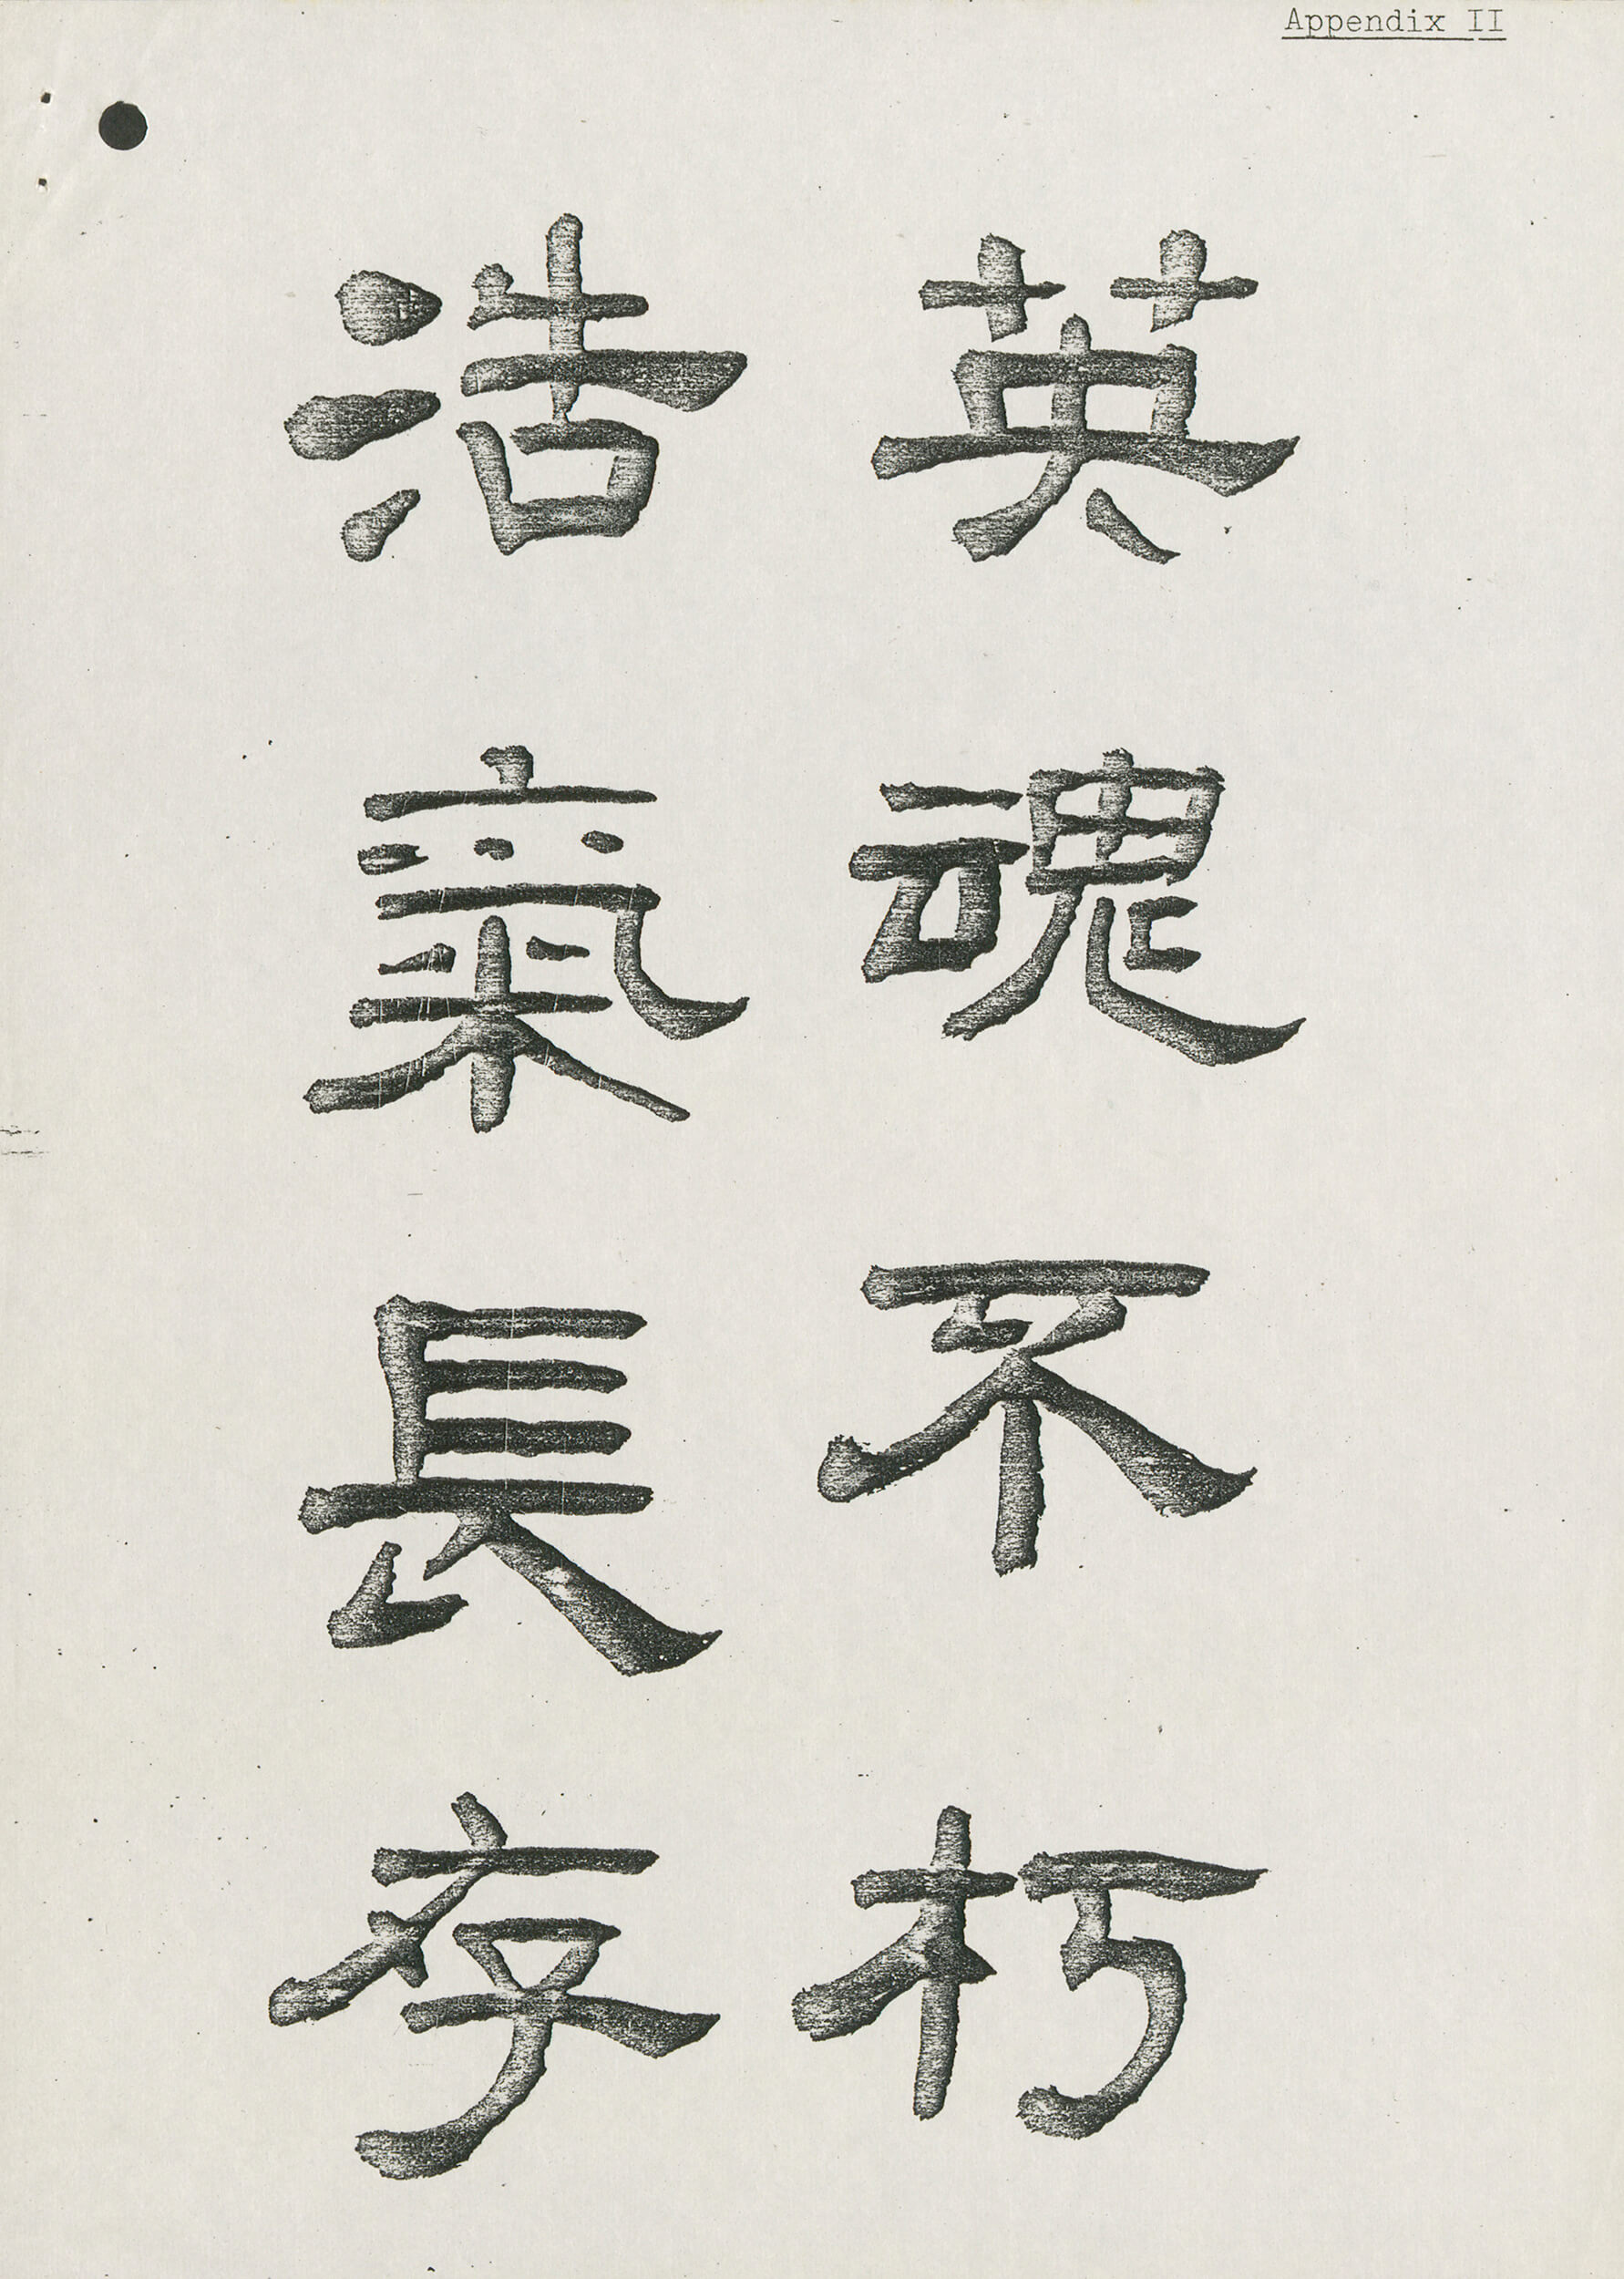 Appendix II
英魂不朽
浩氣長存